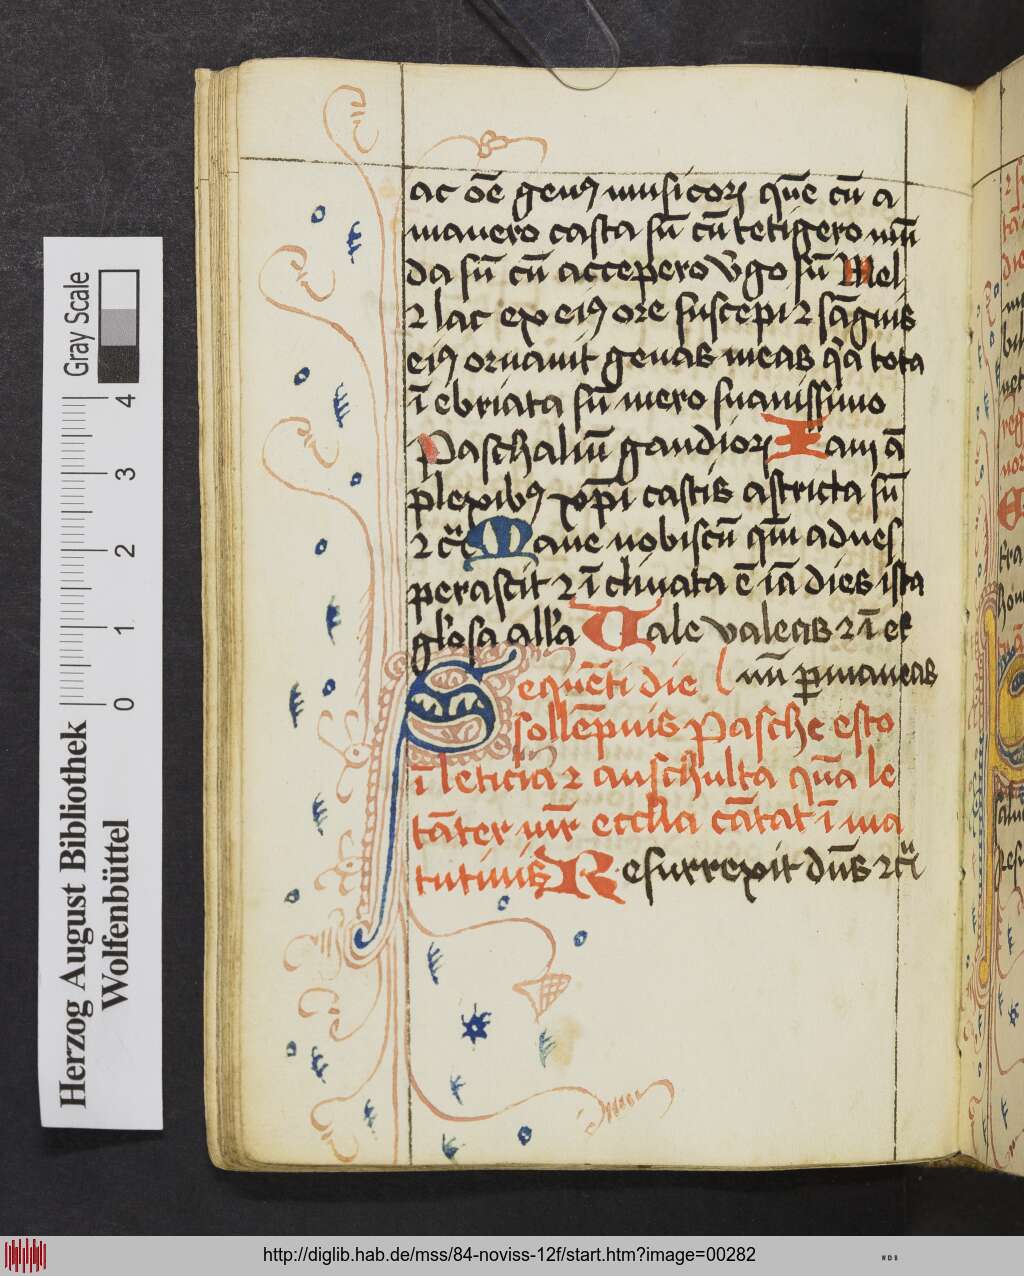 ac oe͞ gen9 musicorꝝ qu͞e cu͞ a
mauero casta su͞ cu͞ tetigero mu͞
da su͞ cu͞ accepero v͛go su͞ Mel
⁊ lac ex ei9 ore suscepi ⁊ sa͞guis
ei9 ornauit genas meas q̍a tota
i͞ebriata su͞ mero suauissimo
Paschaliu͞ gaudiorꝝ Iam a͞
plexib9 xp͞i castis astricta su͞
⁊ cͥ Mane nobiscu͞ qm͞ adues
perascit ⁊ i͞clinata e͞ ia͞ dies ista
gl'osa all'a Vale valeas ⁊ i͞ et
nu͞ ꝑmaneas
Seque͞ti die
solle͞pnis Pasche esto
i͞ leticia ⁊ auschulta qua͞ le
ta͞ter mr͞ eccl'ia ca͞tat i͞ ma
tutinis Resurrexit dn͞s ⁊ cͥ
Gray Scale
0 1 2 3 4
Herzog August Bibliothek
Wolfenbüttel
http://diglib.hab.de/mss/84-noviss-12f/start.htm?image=00282